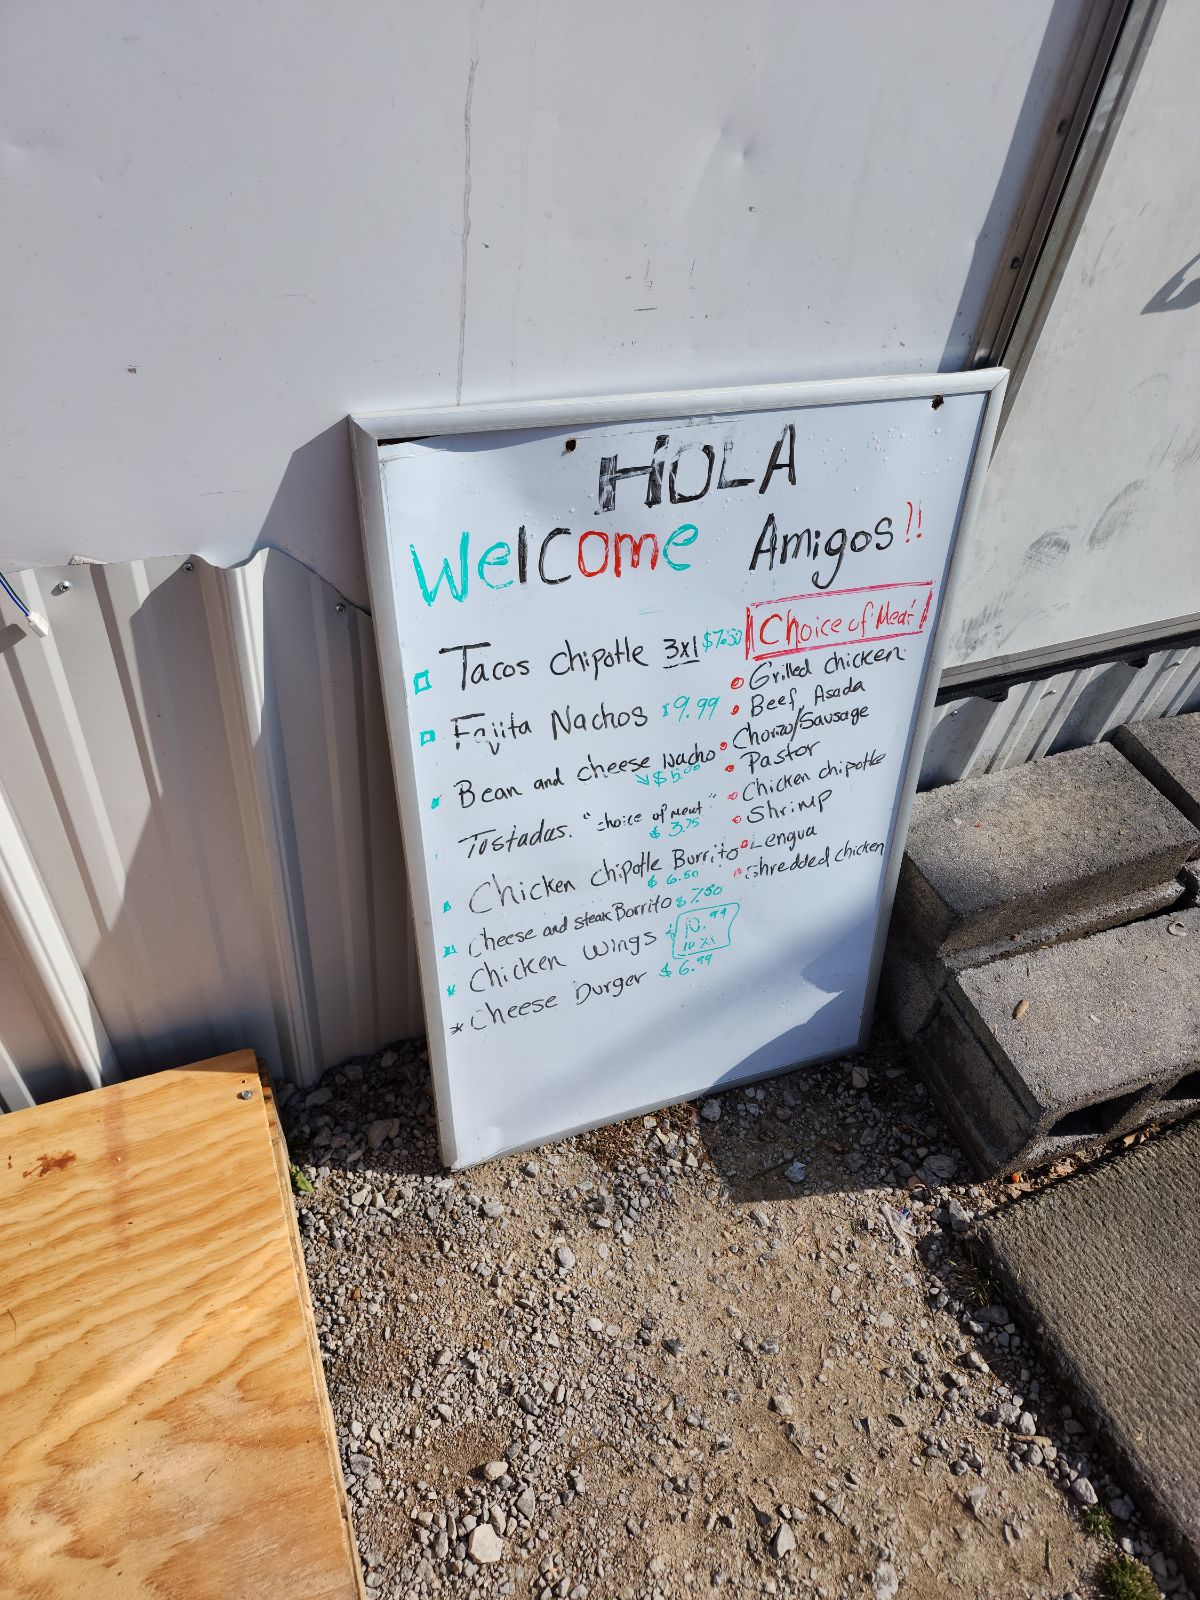 HOLA
Welcome Amigos!!
Tacos chipotle 3x1 $7.50
Fajita Nachos $9.99
Bean and cheese Nacho
$5.00
Tostadas. "choice of Meat"
$3.75
Chicken chipotle Burrito
$6.50
cheese and steak Borrito $7.50
Chicken wings $10.99
10x1
* cheese Burger $6.99
Choice of Meat
Grilled chicken
Beef Asada
Chorizo/Sausage
Pastor
Chicken chipotle
Shrimp
Lengua
Shredded chicken